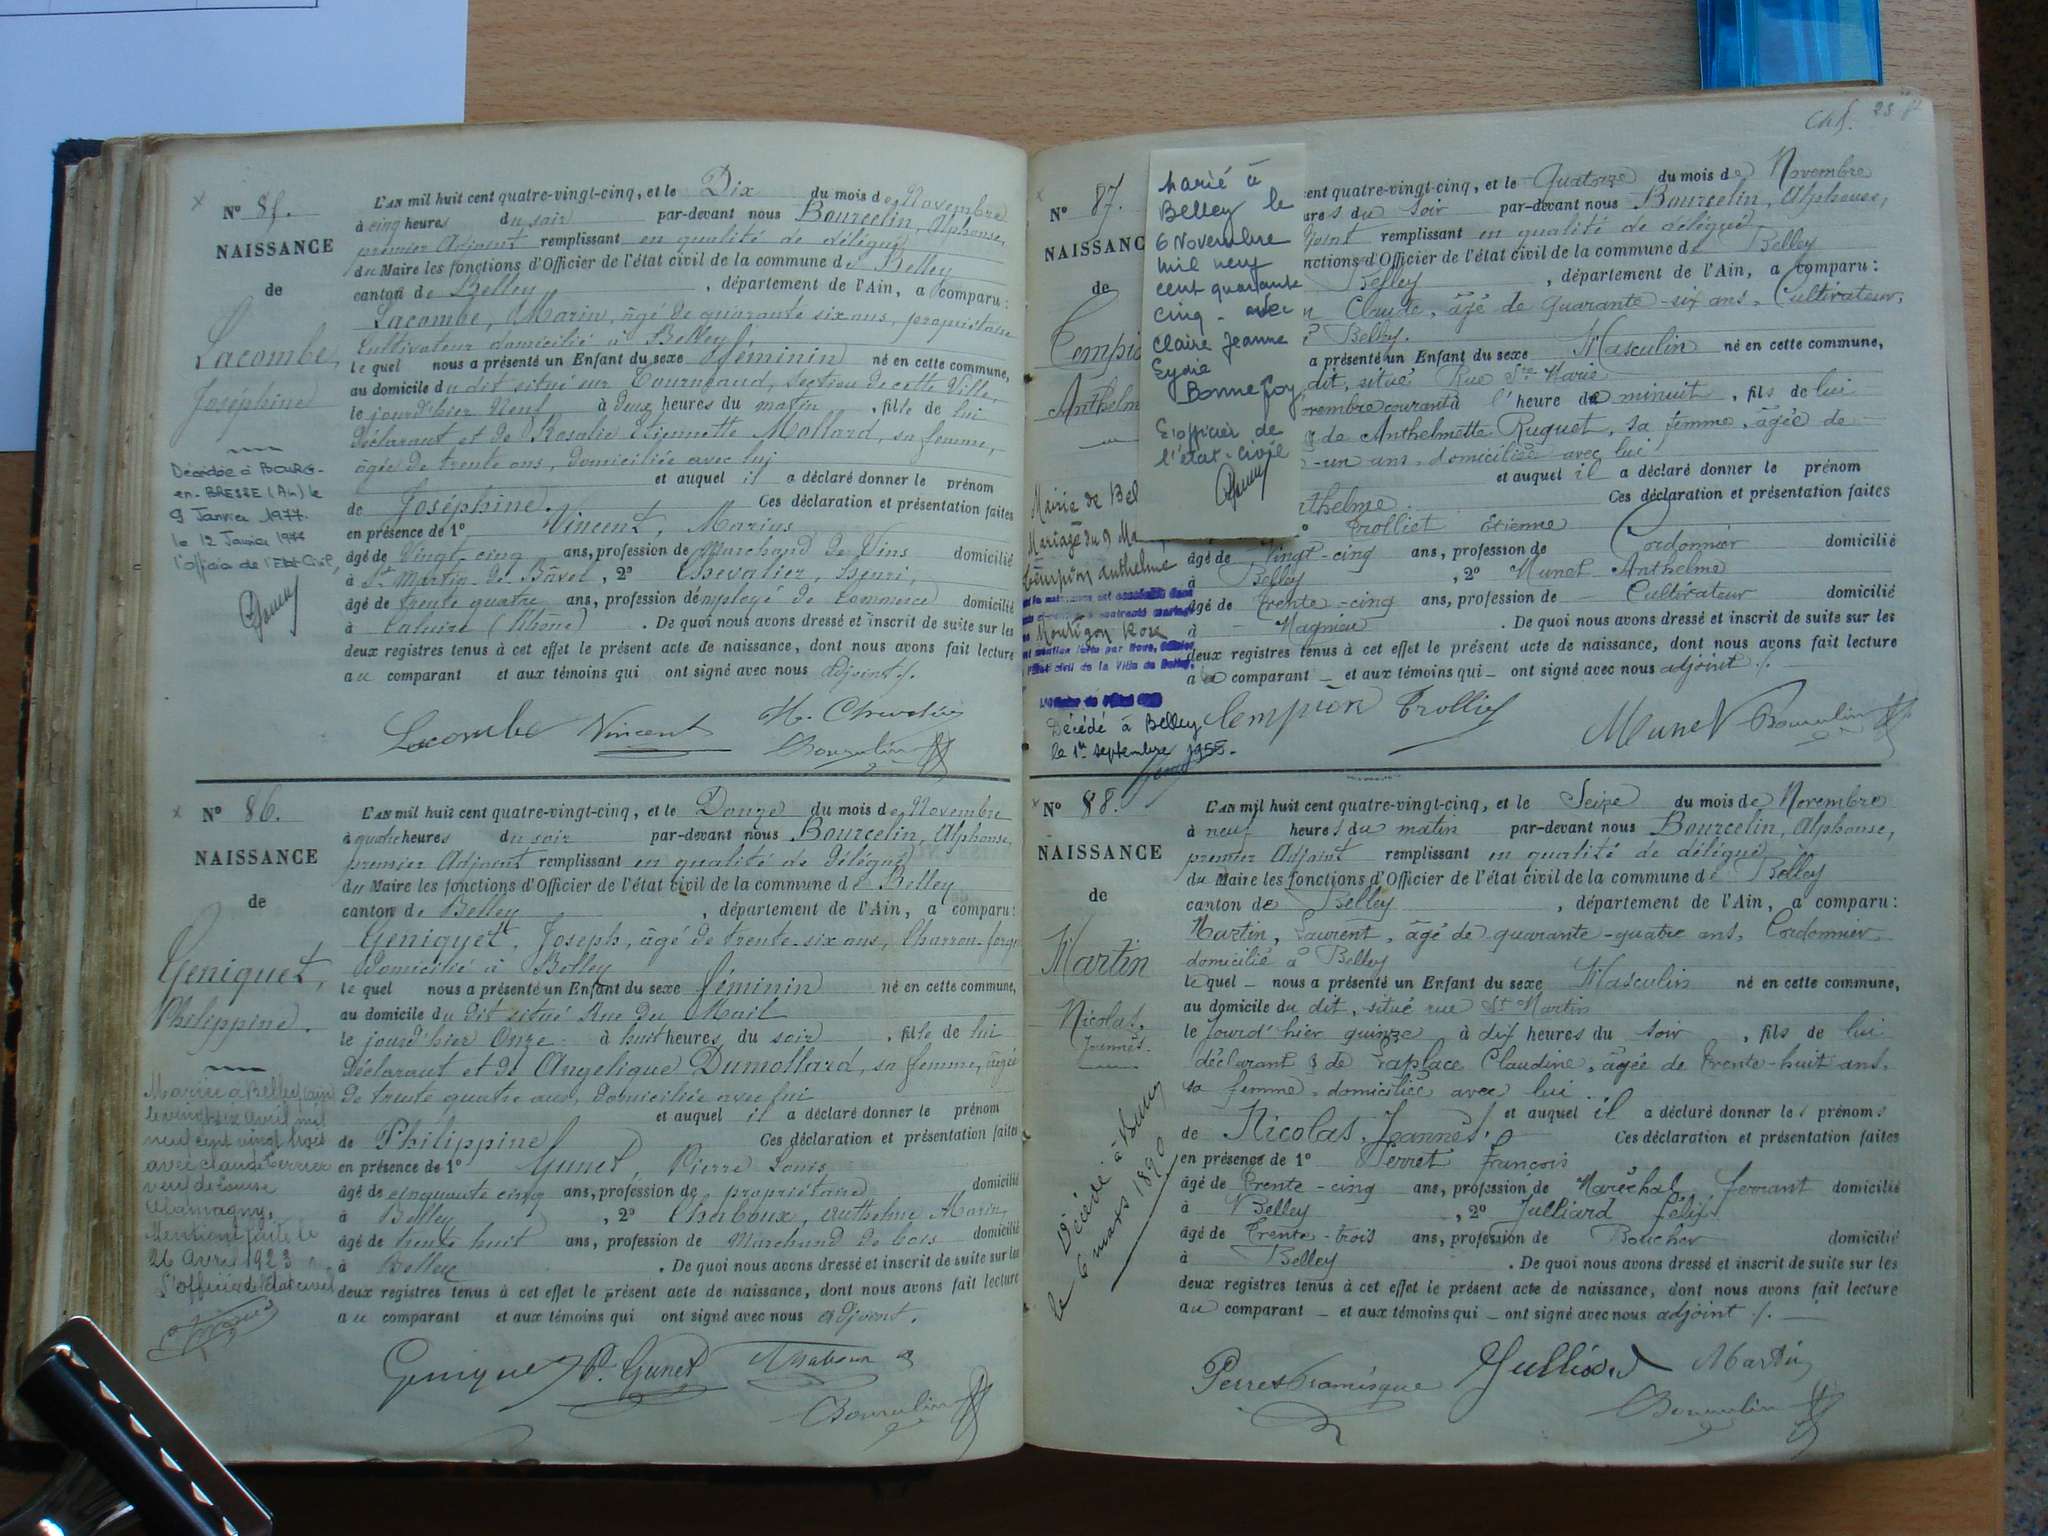 Nº 85.
NAISSANCE
de
Lacombe,
Joséphine
Décédée à BOURG-
en-BRESSE (Ain) le
9 Janvier 1977.
le 12 Janvier 1977
l'officier de l'Etat-Civil,
L'AN mil huit cent quatre-vingt-cinq, et le Dix du mois de Novembre
à cinq heures du soir par-devant nous Bourcelin, Alphonse,
premier Adjoint remplissant en qualité de délégué
du Maire les fonctions d'Officier de l'état civil de la commune de Belley
canton de Belley, département de l'Ain, a comparu :
Lacombe, Marin, âgé de quarante six ans, propriétaire
Cultivateur domicilié à Belley,
lequel nous a présenté un Enfant du sexe féminin né en cette commune,
au domicile du dit situé sur Tourneaud, Section de cette Ville,
le jourd'hier Neuf à Deux heures du matin, fille de lui
déclarant et de Rosalie Etiennette Mollard, sa femme,
âgée de trente ans, domiciliée avec lui
et auquel il a déclaré donner le prénom
de Joséphine. Ces déclaration et présentation faites
en présence de 1º Vincent, Marius
âgé de Vingt-cinq ans, profession de Marchand de Vins domicilié
à St Martin de Bavel, 2º Chevalier, Henri,
âgé de trente quatre ans, profession d'employé de commerce domicilié
à Caluire (Rhône). De quoi nous avons dressé et inscrit de suite sur les
deux registres tenus à cet effet le présent acte de naissance, dont nous avons fait lecture
au comparant et aux témoins qui ont signé avec nous Adjoint ./.
Lacombe Vincent H. Chevalier
Bourcelin
Nº 86.
NAISSANCE
de
Geniquet,
Philippine.
Mariée à Belley (Ain)
le vingt six avril mil
neuf cent vingt trois
avec Claude Terrier
veuf de Louise
Mention faite le
26 Avril 1923
L'officier de l'état civil
L'AN mil huit cent quatre-vingt-cinq, et le Douze du mois de Novembre
à quatre heures du soir par-devant nous Bourcelin, Alphonse,
premier Adjoint remplissant en qualité de Délégué
du Maire les fonctions d'Officier de l'état civil de la commune de Belley
canton de Belley, département de l'Ain, a comparu :
Geniquet, Joseph, âgé de trente-six ans, Charron-forge
domicilié à Belley
lequel nous a présenté un Enfant du sexe féminin né en cette commune,
au domicile du dit situé Rue du Mail
le jourd'hier Onze à huit heures du soir, fille de lui
Déclarant et de Angelique Dumollard, sa femme, âgée
de trente quatre ans, domiciliée avec lui
et auquel il a déclaré donner le prénom
de Philippine Ces déclaration et présentation faites
en présence de 1º Gunet, Pierre Louis
âgé de cinquante cinq ans, profession de propriétaire domicilié
à Belley, 2º Chaboux, Anthelme Marin,
âgé de trente huit ans, profession de Marchand de bois domicilié
à Belley. De quoi nous avons dressé et inscrit de suite sur les
deux registres tenus à cet effet le présent acte de naissance, dont nous avons fait lecture
au comparant et aux témoins qui ont signé avec nous adjoint.
Geniquet P. Gunet
Bourcelin
Nº 87.
NAISSANC
de
Anthelm
Marié à
Belley le
6 Novembre
mil neuf
cent quarante
cinq - avec
Claire Jeanne
Bonnefoy
L'officier de
l'état-civil
Mairie de Bel
Mariage du 9 Ma
Tempion Anthelme
Montigon Rose
Décédé à Belley
le 1er septembre 1955.
cent quatre-vingt-cinq, et le Quatorze du mois de Novembre
ures du soir par-devant nous Bourcelin, Alphonse,
djoint remplissant en qualité de délégué
nctions d'Officier de l'état civil de la commune de Belley
Belley, département de l'Ain, a comparu :
Claude, âgé de quarante-six ans, Cultivateur,
à Belley.
a présenté un Enfant du sexe Masculin né en cette commune,
dit, situé Rue Ste Marie
ovembre courant à l'heure de minuit, fils de lui
de Anthelmette Ruguet, sa femme, âgée de
-un ans, domiciliée avec lui
et auquel il a déclaré donner le prénom
nthelme Ces déclaration et présentation faites
Trolliet Etienne
âgé de Vingt-cinq ans, profession de Cordonnier domicilié
à Belley, 2º Munet Anthelme
âgé de Trente-cinq ans, profession de Cultivateur domicilié
à Magnieu. De quoi nous avons dressé et inscrit de suite sur les
deux registres tenus à cet effet le présent acte de naissance, dont nous avons fait lecture
au comparant et aux témoins qui ont signé avec nous adjoint ./.
Tempion Trolliet
Munet Bourcelin
Nº 88.
NAISSANCE
de
Martin
Nicolas,
Joannès.
Décédé à Belley
le 6 mars 1890
L'AN mil huit cent quatre-vingt-cinq, et le Seize du mois de Novembre
à neuf heures du matin par-devant nous Bourcelin, Alphonse,
premier Adjoint remplissant en qualité de délégué
du Maire les fonctions d'Officier de l'état civil de la commune de Belley
canton de Belley, département de l'Ain, a comparu :
Martin, Laurent, âgé de quarante-quatre ans, Cordonnier
domicilié à Belley
lequel nous a présenté un Enfant du sexe Masculin né en cette commune,
au domicile du dit, situé rue St Martin
le jourd'hier quinze à dix heures du soir, fils de lui
déclarant & de Laplace Claudine, âgée de Trente-huit ans,
sa femme, domiciliée avec lui
et auquel il a déclaré donner les prénoms
de Nicolas, Joannès. Ces déclaration et présentation faites
en présence de 1º Perret François
âgé de Trente-cinq ans, profession de Maréchal ferrant domicilié
à Belley, 2º Julliard Félix
âgé de Trente-trois ans, profession de Boucher domicilié
à Belley. De quoi nous avons dressé et inscrit de suite sur les
deux registres tenus à cet effet le présent acte de naissance, dont nous avons fait lecture
au comparant et aux témoins qui ont signé avec nous adjoint ./.
Julliard Martin
Bourcelin